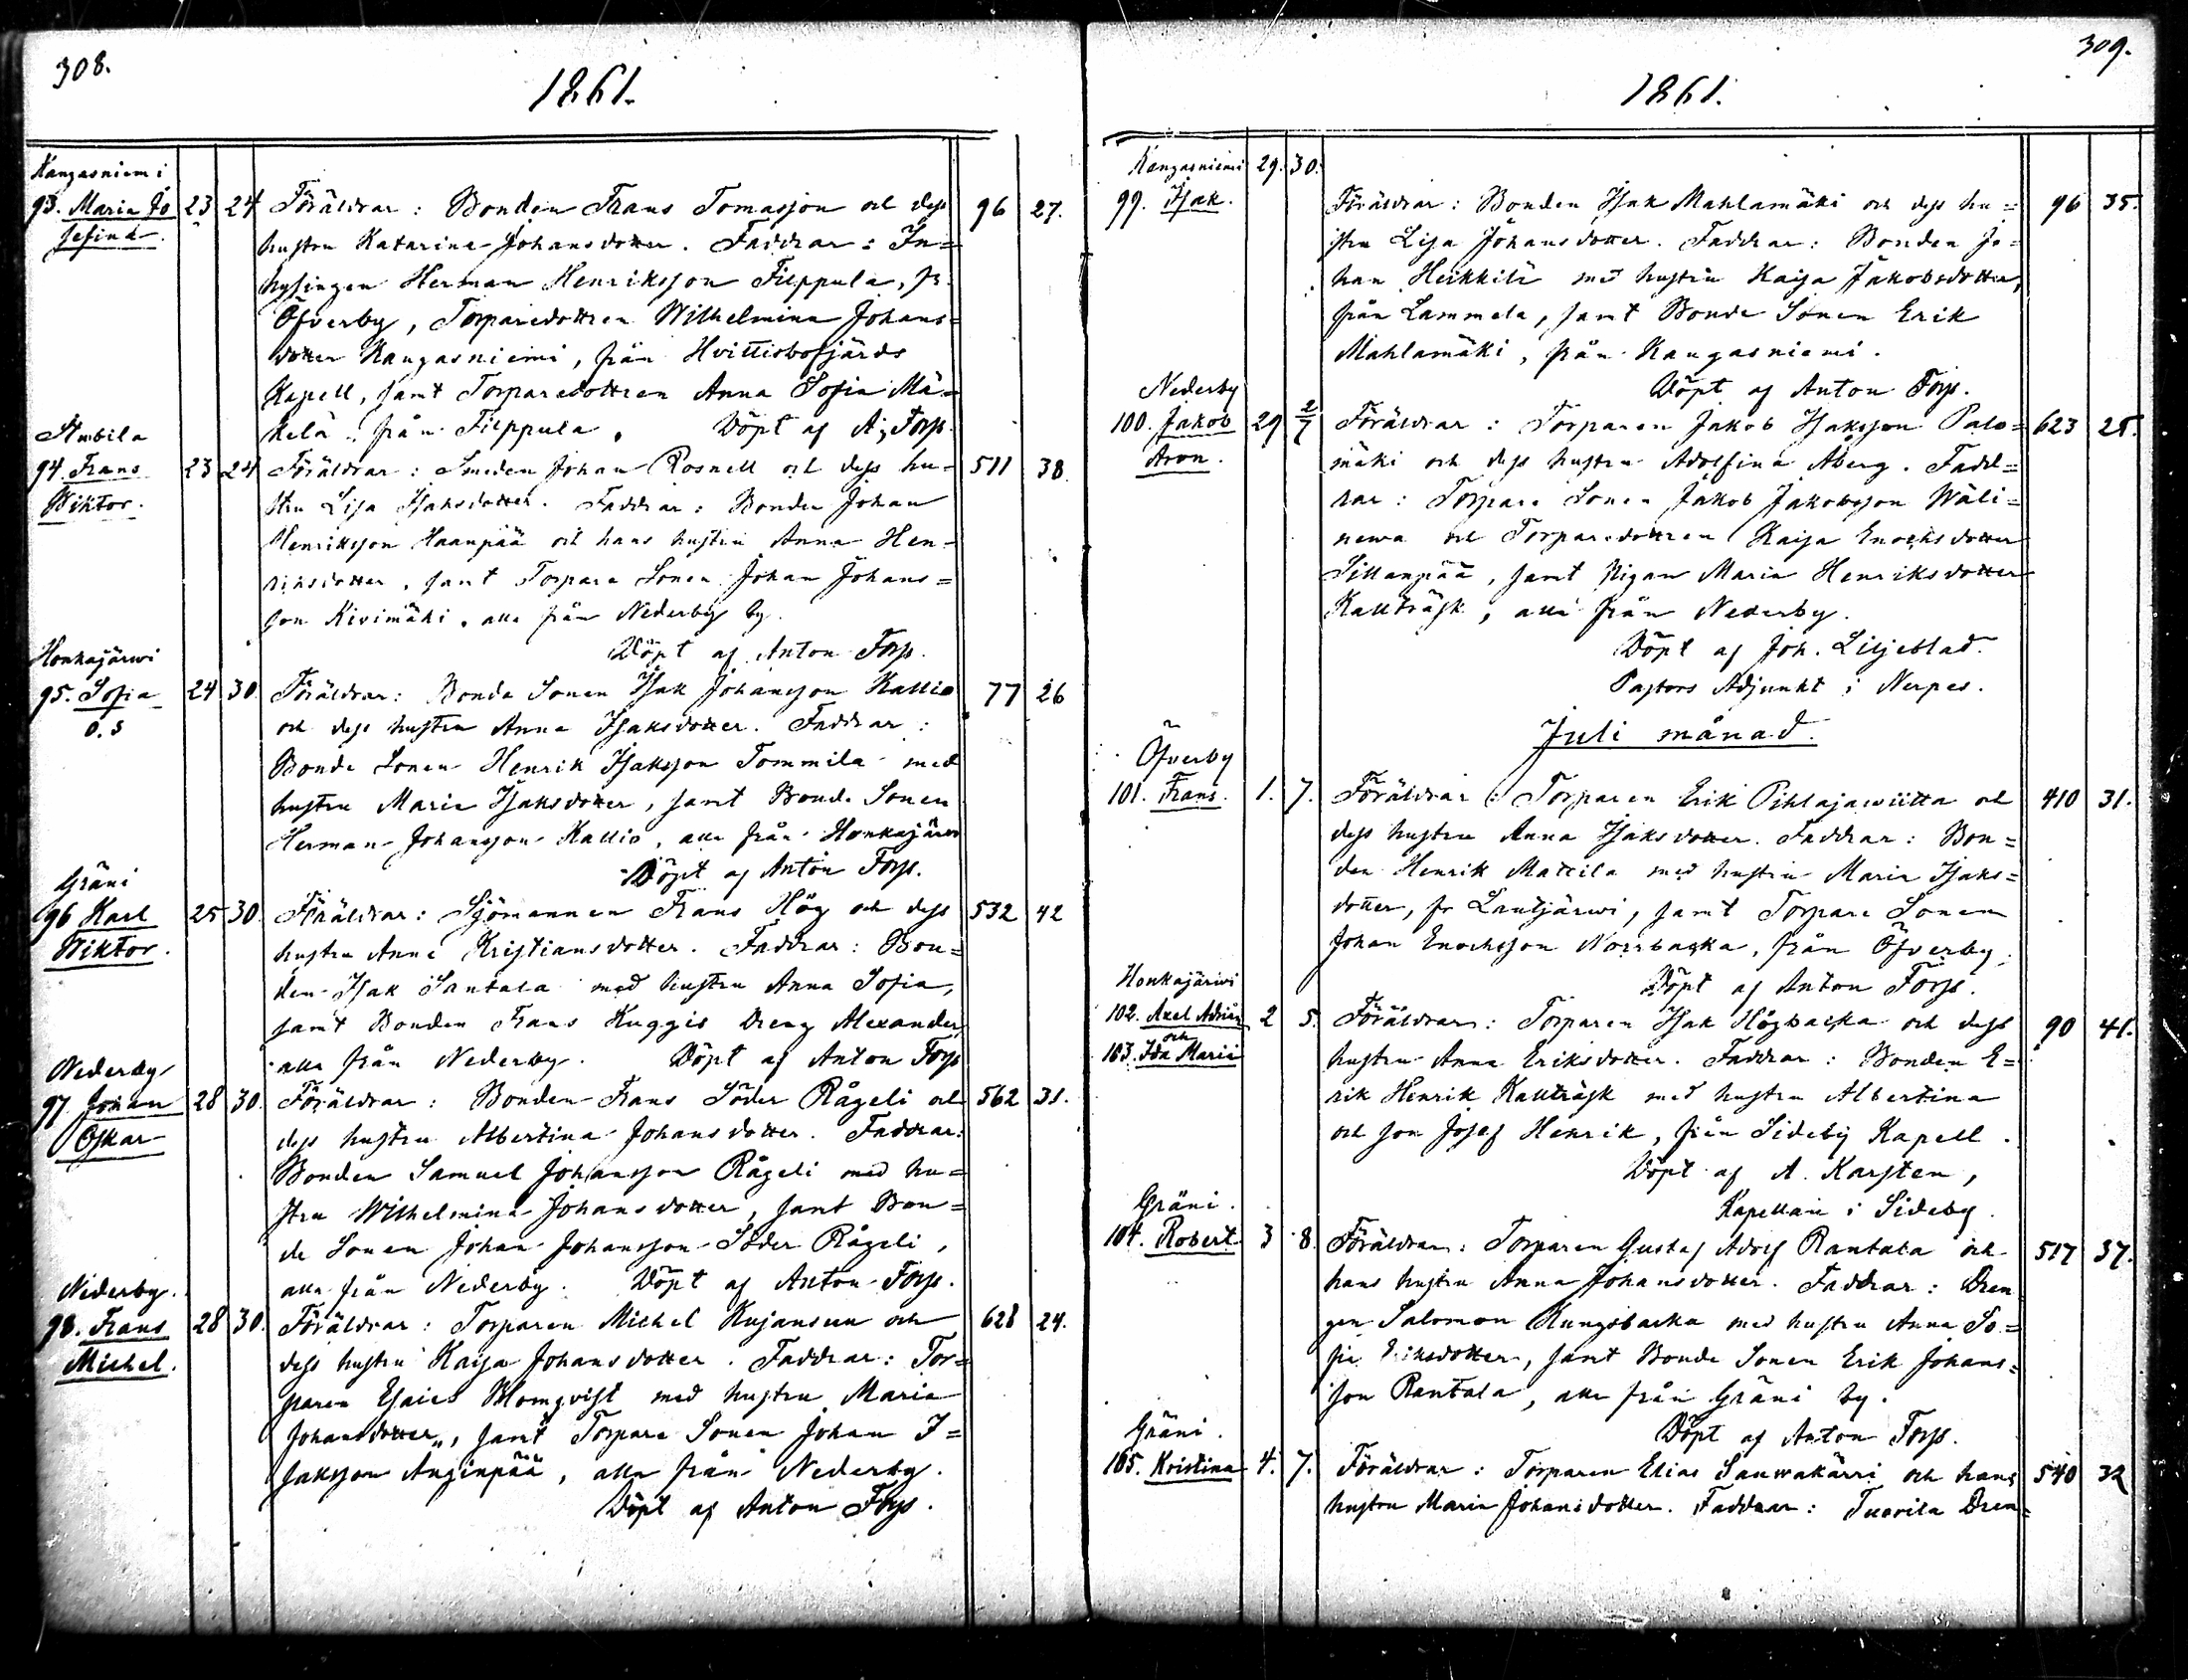 308.
1861.
Kangasniemi
93. Maria Jo 23 24 Föräldrar: Bonden Frans Tomasson och dess 96 27.
sefina. hustru Katarina Johansdotter. Faddrar: In=
hysingen Herman Henriksson Filppula, fr.
Öfverby, Torparedottren Wilhelmina Johans=
dotter Kangasniemi, från Hvittisbofjärds
Kapell, samt Torparedottren Anna Sofia Mä=
kelä från Filppula. Döpt af A. Forss.
Ämbila
94. Frans 23 24 Föräldrar: Smeden Johan Rosnell och dess hu= 511 38.
Wiktor. stru Lisa Isaksdotter. Faddrar: Bonden Johan
Henriksson Haanpää och hans hustru Anna Hen=
riksdotter, samt Torpare Sonen Johan Johans=
son Kivimäki, alla från Nederby by.
Döpt af Anton Forss.
Honkajärwi
95. Sofia 24 30. Föräldrar: Bonde Sonen Isak Johansson Kallio 77 26
o. s och dess hustru Anna Isaksdotter. Faddrar:
Bonde Sonen Henrik Isaksson Tommila med
hustru Maria Isaksdotter, samt Bonde Sonen
Herman Johansson Kallio, alla från Honkajärwi
Döpt af Anton Forss.
Gräni
96 Karl 25 30. Föräldrar: Sjömannen Frans Hög och dess 532 42
Wiktor. hustru Anna Kristiansdotter. Faddrar: Bon=
den Isak Santala med hustru Anna Sofia,
samt Bonden Frans Kuggis Dreng Alexander,
alla från Nederby. Döpt af Anton Forss
Nederby
97. Johan 28 30. Föräldrar: Bonden Frans Söder Rågeli och 562 31.
Oskar dess hustru Albertina Johansdotter. Faddrar:
Bonden Samuel Johansson Rågeli med hu=
stru Wilhelmina Johansdotter, samt Bon=
de Sonen Johan Johansson Söder Rågeli,
alla från Nederby. Döpt af Anton Forss.
Nederby.
98. Frans 28 30. Föräldrar: Torparen Michel Kujansuu och 628 24.
Michel. dess hustru Kaisa Johansdotter. Faddrar: Tor=
paren Esaias Blomqvist med hustru Maria
Johansdotter, samt Torpare Sonen Johan I=
saksson Anginpää, alla från Nederby.
Döpt af Anton Forss.
309.
1861.
Kangasniemi 29. 30.
99. Isak. Föräldrar: Bonden Isak Mahlamäki och dess hu= 96 35.
stru Lisa Johansdotter. Faddrar: Bonden Jo=
han Heikkilä med hustru Kaisa Jakobsdotter,
från Lammela, samt Bonde Sonen Erik
Mahlamäki, från Kangasniemi.
Döpt af Anton Forss.
Nederby
100. Jakob 29 2/7 Föräldrar: Torparen Jakob Isaksson Palo= 623 25.
Aron. mäki och dess hustru Adolfina Åberg. Fadd=
rar: Torpare Sonen Jakob Jakobsson Wäli=
newa och Torparedottren Kaisa Enochsdotter
Sillanpää, samt Pigan Maria Henriksdotter
Kallträsk, alla från Nederby.
Döpt af Joh. Liljeblad.
Pastors Adjunkt i Nerpes.
Juli månad.
Öfverby
101. Frans. 1. 7. Föräldrar: Torparen Erik Pihlajawiitta och 410 31.
dess hustru Anna Isaksdotter. Faddrar: Bon=
den Henrik Mattila med hustru Maria Isaks=
dotter, fr Lautjärwi, samt Torpare Sonen
Johan Enochsson Norrbacka, från Öfverby.
Döpt af Anton Forss.
Honkajärwi
102. Axel Adrian 2 5. Föräldrar: Torparen Isak Högbacka och dess 90 41.
och
103. Ida Maria hustru Anna Eriksdotter. Faddrar: Bonden E=
rik Henrik Kallträsk med hustru Albertina
och son Josef Henrik, från Sideby Kapell.
Döpt af A. Karsten,
Kapellan i Sideby.
Gräni.
104. Robert 3 8. Föräldrar: Torparen Gustaf Adolf Rantala och 517 37.
hans hustru Anna Johansdotter. Faddrar: Dren
gen Salomon Kungsbacka med hustru Anna So=
fia Eriksdotter, samt Bonde Sonen Erik Johans=
son Rantala, alla från Gräni by.
Döpt af Anton Forss.
Gräni.
105. Kristina 4. 7. Föräldrar: Torparen Elias Sauwakärri och hans 540 32
hustru Maria Johansdotter. Faddrar: Tuorila Dren=